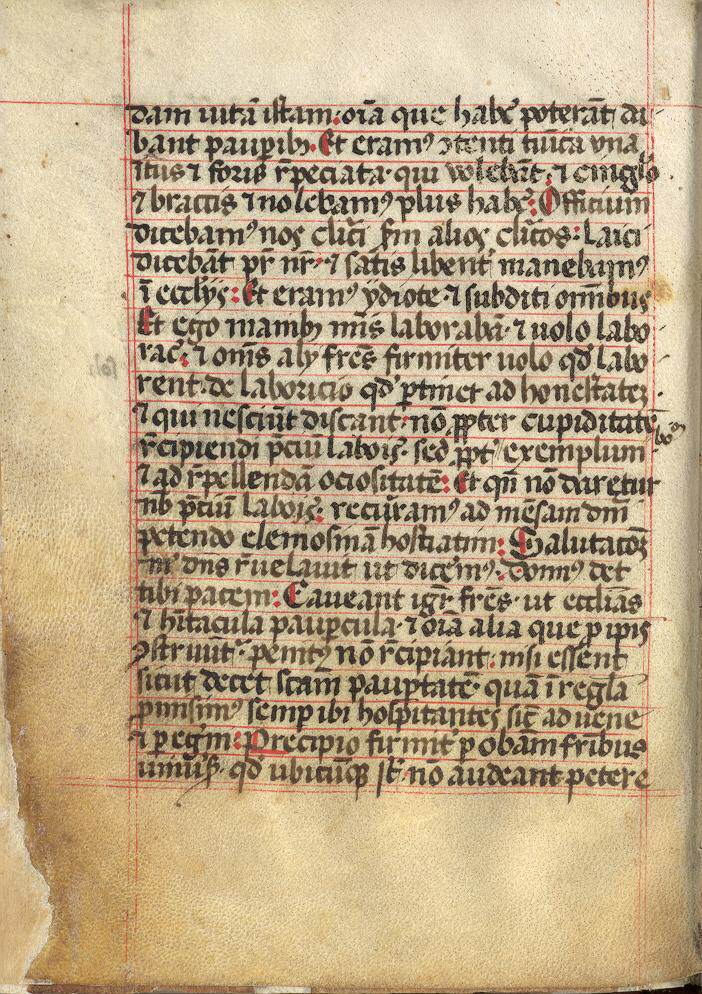 dam uitā istam: oīa que habe᷑ poterāt di
bant paupibꝫ. Et eramꝰ ꝯtenti tūica vna
ītus ⁊ foris r̄peciata. qui volebāt. ⁊ cingło
⁊ braccis ⁊ nolebamꝰ plus habe᷑: Officium
dicebamꝰ nos clici scḋm alios clicos: Laici
dicebāt pr̄ nr̄. ⁊ satis libent᷑ manebamꝰ
ī eccłijs: Et eramꝰ ydiote ⁊ subditi omībus
Et ego manibꝫ mīs laborabā. ⁊ uolo labo
rar̄. ⁊ om̄s alij frēs firmiter uolo qd̄ labo
rent. de laboricio qd̄ ꝑtinet ad honestatez.
⁊ qui nesciūt discant. nō ꝓpter cupiditatē
r̄cipiendi p̄ciū labois. sed ꝓpt᷑ exemplum bonū
⁊ ad r̄pellendā ociositatē: Et qn̄ nō daretur
nb̄ p̄ciū labois. recurramꝰ ad mēsam dn̄i
petendo elemosinā hostiatim: Salutacōꝫ
m̄ dn̄s r̄uelauit ut dicem̄ꝰ. domꝰ det
tibi pacem: Caueant igr̄ frēs. ut eccłias
⁊ hītacula paupcula. ⁊ oīa alia que ꝓ ipis
ꝯstruūt᷑. penitꝰ nō r̄cipiant. nisi essent
sicut decet scām pauptatē. quā ī regła
ꝓmisimꝰ semp ibi hospitantes sic̄ aduene
⁊ pegīni: Precipio firmit᷑ ꝑ obām frībus
uniuisꝭ. qd̄ ubicūqꝫ st̄. nō audeant petere